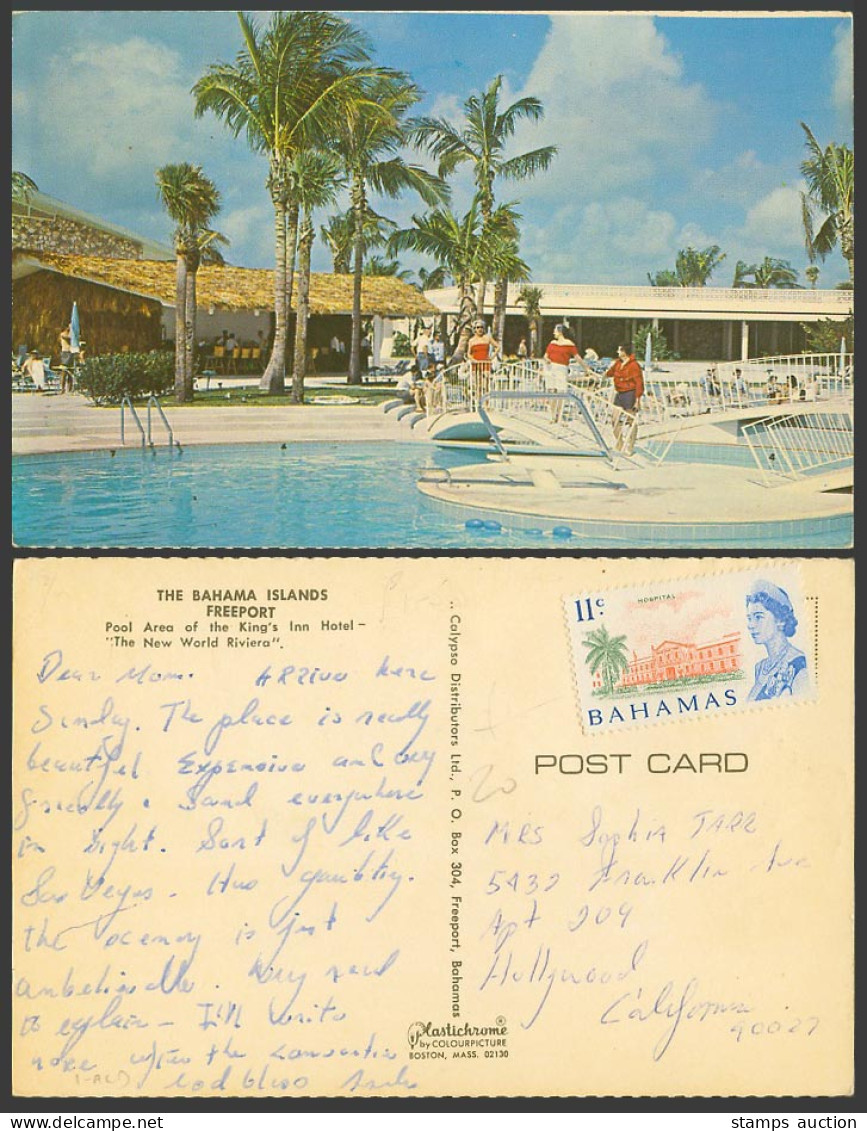 THE BAHAMA ISLANDS
FREEPORT
Pool Area of the King's Inn Hotel –
"The New World Riviera".
Dear Mom. ARRIVED here
Sunday. The place is really
beautiful Expensive and very
friendly. Sand everywhere
in sight. Sort of like
Las Vegas. Has gambling.
the scenery is just
unbelievable. Very hard
to explain – I'll write
more after the convention
God bless
.. Calypso Distributors Ltd., P. O. Box 304, Freeport, Bahamas
Plastichrome ®
by COLOURPICTURE
BOSTON, MASS. 02130
11c
HOSPITAL
BAHAMAS
POST CARD
20
MRS Sophia TARR
5432 Franklin Ave
Apt 209
Hollywood
California
90027
stamps auction